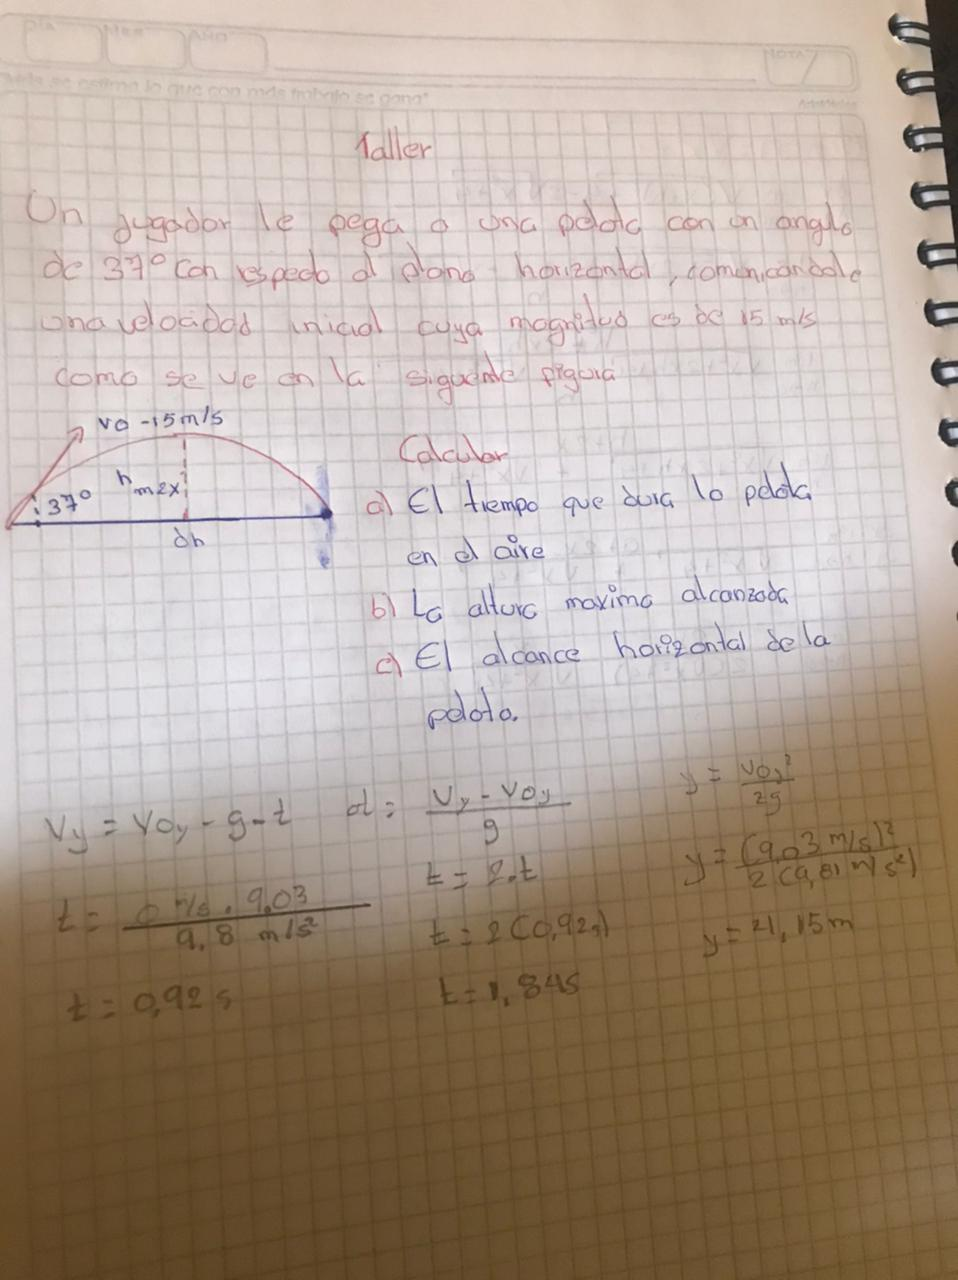 DIA MES AÑO NOTA
Taller
Un jugador le pega a una pelota con un angulo
de 37° con respecto al plano horizontal, comunicandole
una velocidad inicial cuya magnitud es de 15 m/s
como se ve en la siguente figura
vo -15m/s
37° h max
dh
Calcular
a) El tiempo que dura la pelota
en el aire
b) La altura maxima alcanzada
c) El alcance horizontal de la
pelota.
Vy = Voy - g - t
t = 0 m/s . 9.03 / 9,8 m/s²
t = 0,92 s
d = Vy - Voy / g
t = 2.t
t = 2(0,92s)
t = 1,84s
y = Voy² / 2g
y = (9,03 m/s)² / 2(9,81 m/s²)
y = 21,15m